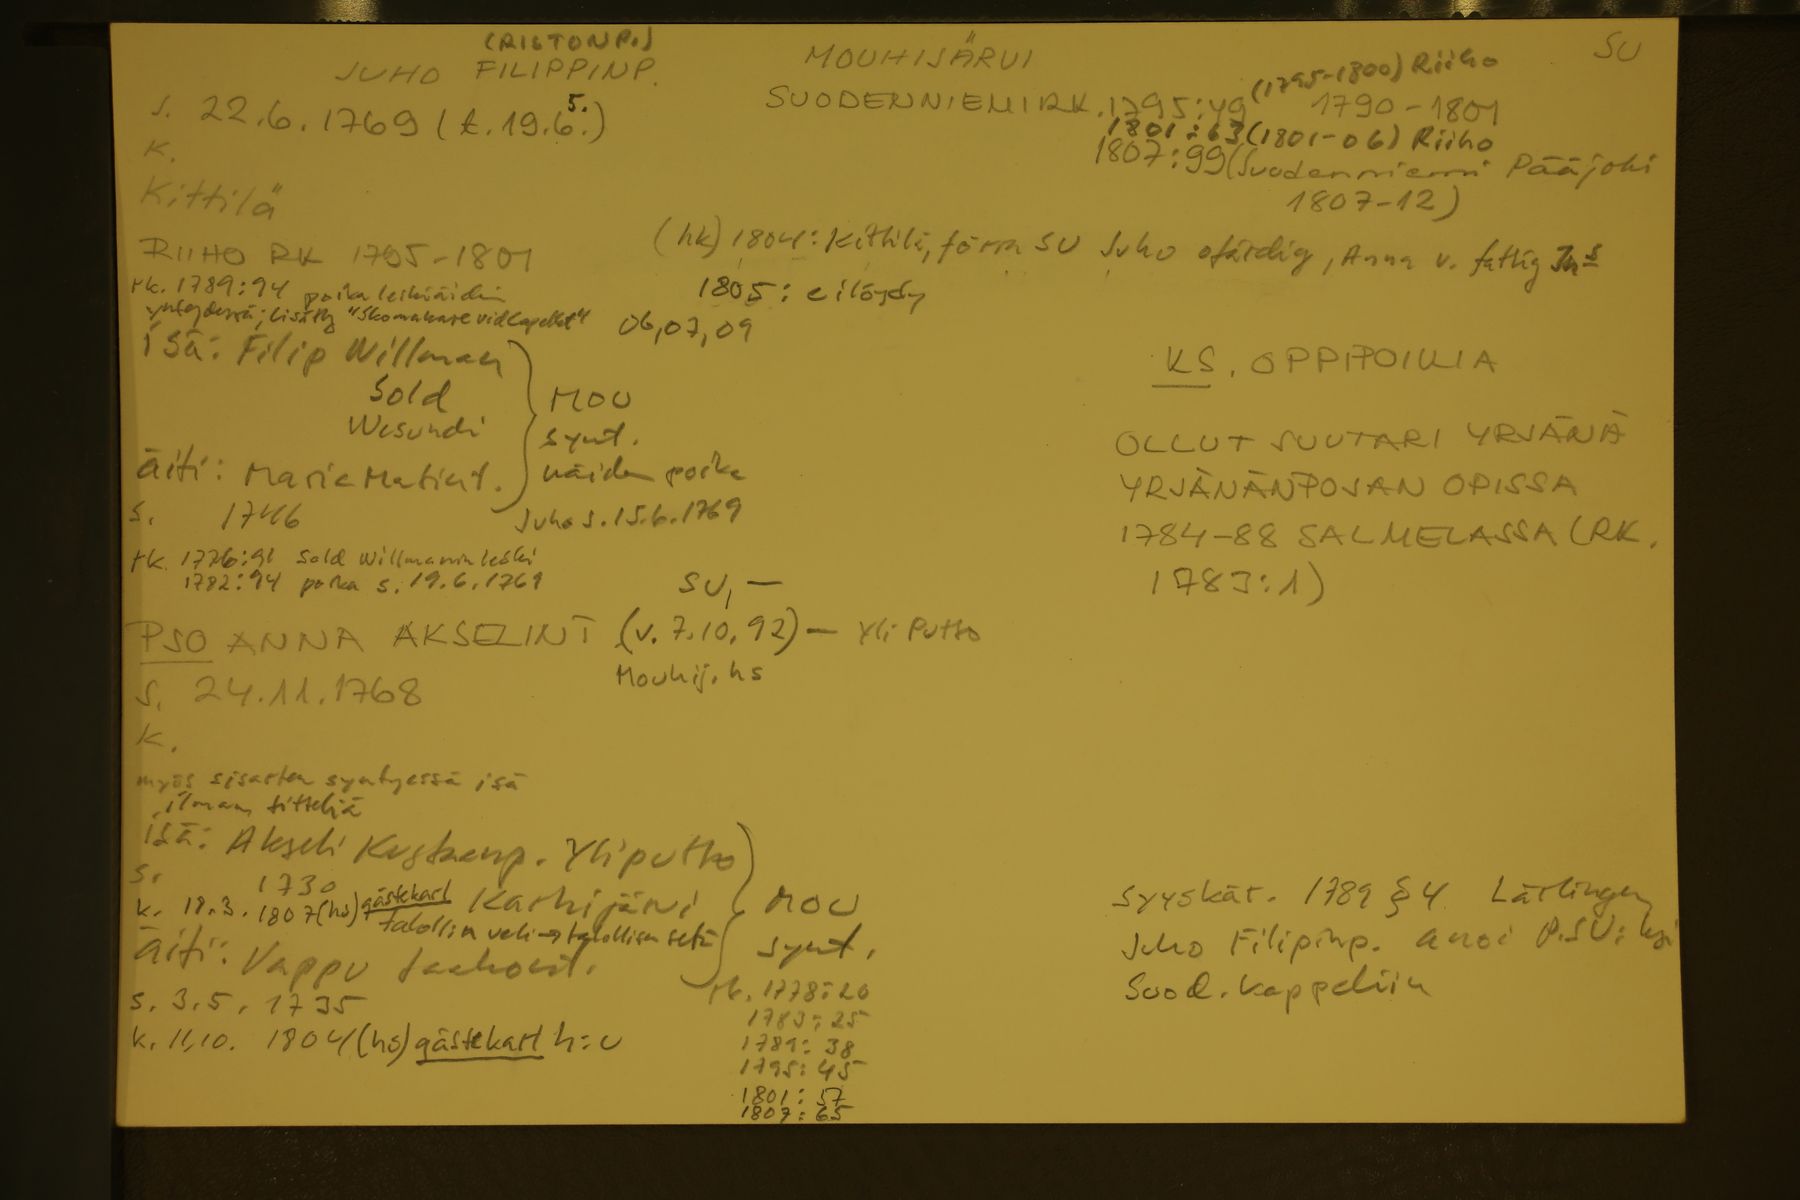 (RISTONP.)
JUHO FILIPPINP.
MOUHIJÄRVI
SU
s. 22.6.1769 (t. 19.6.)
5.
SUODENNIEMI RK. 1795:49 (1795-1800) Riiho
1790-1801
1801:63 (1801-06) Riiho
1807:99 (Suodenniemi Pääjoki
1807-12)
K.
Kittilä
RIIHO RK 1795-1801
(hk) 1804: Kittilä, förra SU Juho ofärdig, Anna v. fattig
1805: ei löydy
06,07,09
rk. 1789:94 poika leskiäidin
yhteydessä; lisätty "Skomakare vid Capellet"
isä: Filip Willman
Sold
Wesundi
äiti: Maria Matint.
s. 1746
MOU
synt.
näiden poika
Juho s. 15.6.1769
rk. 1776:91 Sold Willmannin leski
1782:94 poika s. 19.6.1769
KS. OPPIPOIKIA
OLLUT SUUTARI YRJÄNÄ
YRJÄNÄNPOJAN OPISSA
1784-88 SALMELASSA (RK.
1783:1)
SU, —
PSO ANNA AKSELINT (v. 7.10.92) — Yli Putto
Mouhij. hs
s. 24.11.1768
K.
myös sisarten syntyessä isä
ilman titteliä
isä: Akseli Kustaanp. Yliputto
s. 1730
Karhijärvi
k. 18.3.1807 (hs) gästekarl
talollisen veli → talollisen setä
äiti: Vappu Jaakont.
s. 3.5.1735
k. 11.10. 1804 (hs) gästekarl h:u
MOU
synt.
rk. 1778:20
1783:25
1789:38
1795:45
1801:57
1807:65
syyskär. 1789 § 4 Lärlingen
Juho Filipinp. anoi P.SU:ksi
Suod. kappeliin